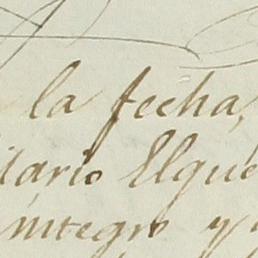 la fecha,
ilario Elgue
integro y